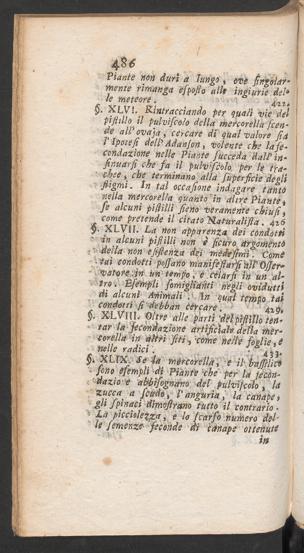 486
Piante non duri a lungo, ove ſingolar-
mente rimanga eſpoſto alle ingiurie del-
le meteore. 422.
§. XLVI. Rintracciando per quali vie del
piſtillo il pulviſcolo della mercorella ſcen-
de all'ovaja, cercare di qual valore ſia
l'Ipoteſi dell'Adanſon, volente che la fe-
condazione nelle Piante ſucceda dall'in-
ſinuarſi che fa il pulviſcolo per le tra-
chee, che terminano alla ſuperficie degli
ſtigmi. In tal occaſione indagare tanto
nella mercorella quanto in altre Piante,
ſe alcuni piſtilli ſieno veramente chiuſi,
come pretende il citato Naturaliſta. 426
§. XLVII. La non apparenza dei condotti
in alcuni piſtilli non è ſicuro argomento
della non eſiſtenza dei medeſimi. Come
tai condotti poſſano manifeſtarſi all'Oſſer-
vatore in un tempo, e celarſi in un al-
tro. Eſempli ſomiglianti negli ovidutti
di alcuni Animali. In qual tempo tai
condotti ſi debban cercare. 429.
§. XLVIII. Oltre alle parti del piſtillo ten-
tar la fecondazione artificiale della mer-
corella in altri ſiti, come nelle foglie, e
nelle radici. 433.
§. XLIX. Se la mercorella, e il baſſilico
ſono eſempli di Piante che per la fecon-
dazione abbiſognano del pulviſcolo, la
zucca a ſcudo, l'anguria, la canape,
gli ſpinaci dimoſtrano tutto il contrario.
La picciolezza, e lo ſcarſo numero del-
le ſemenze feconde di canape ottenute
in